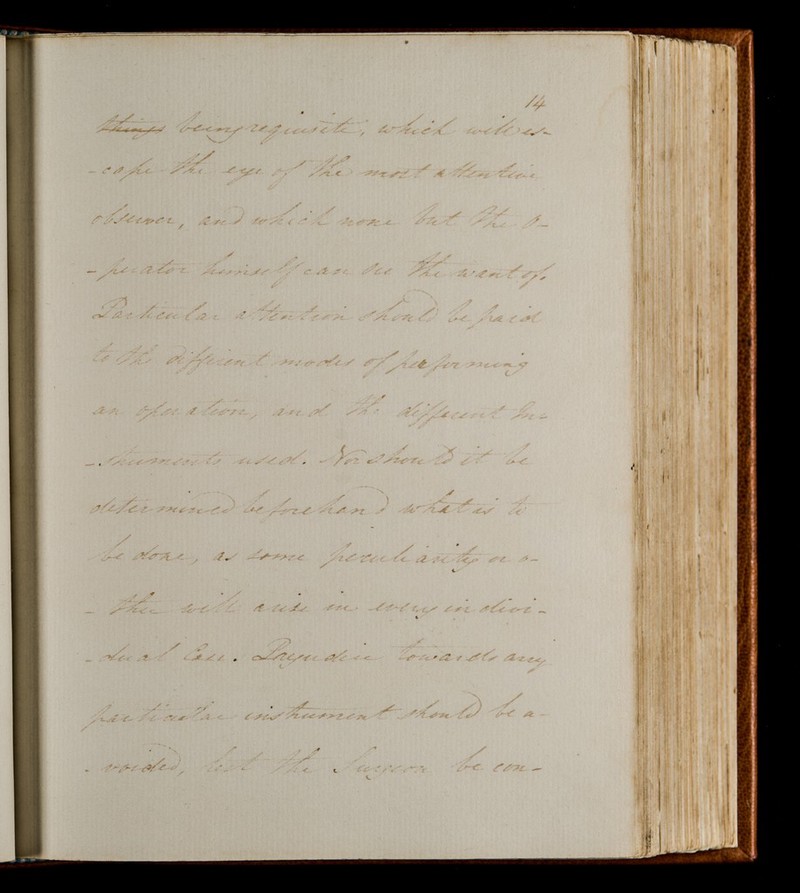 14
things being requisite, which will es-
-cape the eye of the most attentive
observer, and which none but the O-
-perator himself can see the want of.
Particular attention should be paid
to the different modes of performing
an operation, and the different In-
-struments used. Nor should it be
determined beforehand what is to
be done, as some peculiarity or o-
-ther will arise in every indivi-
-dual Case. Prejudice towards any
particular instrument should be a-
-voided, lest the Surgeon be con-